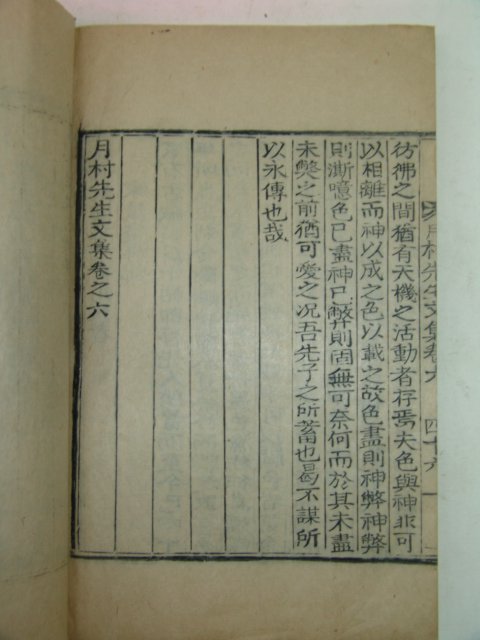 月村先生文集卷六 四十六
彷彿之間猶有天機之活動者存焉夫色與神非可
以相離而神以成之色以載之故色盡則神弊神弊
則澌噫色已盡神已弊則固無可奈何而於其未盡
未弊之前猶可愛之况吾先子之所蓄也曷不謀所
以永傳也哉
月村先生文集卷之六